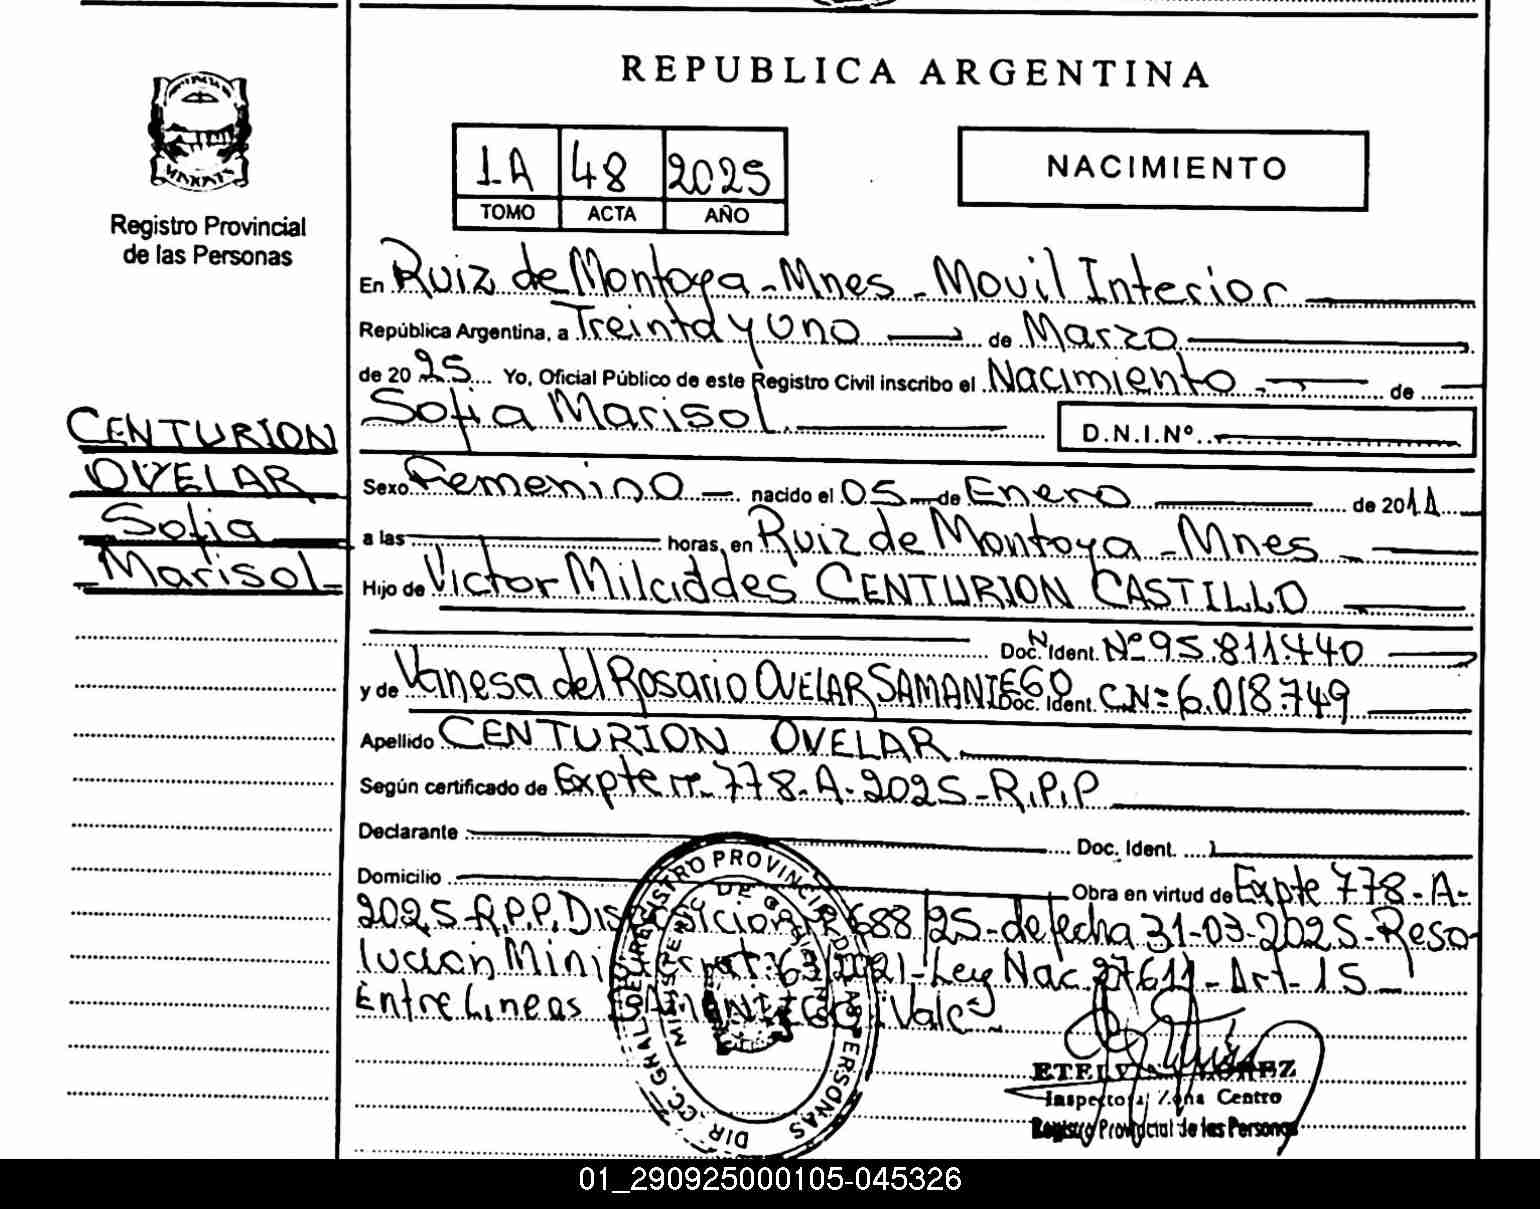 REPUBLICA ARGENTINA
1A 48 2025
TOMO ACTA AÑO
NACIMIENTO
MISIONES
Registro Provincial
de las Personas
CENTURION
OVELAR
Sofia
Marisol
En Ruiz de Montoya - Mnes - Movil Interior
República Argentina, a Treinta y Uno de Marzo
de 2025 Yo, Oficial Público de este Registro Civil inscribo el Nacimiento de
Sofia Marisol
D.N.I.Nº
Sexo Femenino nacido el 05 de Enero de 2011
a las horas, en Ruiz de Montoya - Mnes -
Hijo de Victor Milciddes CENTURION CASTILLO
Doc. Ident. Nº 95.811.440
y de Vanesa del Rosario OVELAR SAMANIEGO Doc. Ident. C.Nº 6.018.749
Apellido CENTURION OVELAR
Según certificado de Expte nº 778-A-2025-R.P.P
Declarante Doc. Ident.
Domicilio Obra en virtud de Expte 778-A-
2025-R.P.P. Disposicion 688/25-de fecha 31-03-2025-Reso-
lucion Minist 63/2021-Ley Nac. 27611-Art-15-
Entre Lineas SAMANIEGO Vale
DIR. CC. GRAL. DEL REGISTRO PROVINCIAL DE LAS PERSONAS
MINISTERIO DE GOBIERNO
Inspectora Zona Centro
Registro Provincial de las Personas
01_290925000105-045326